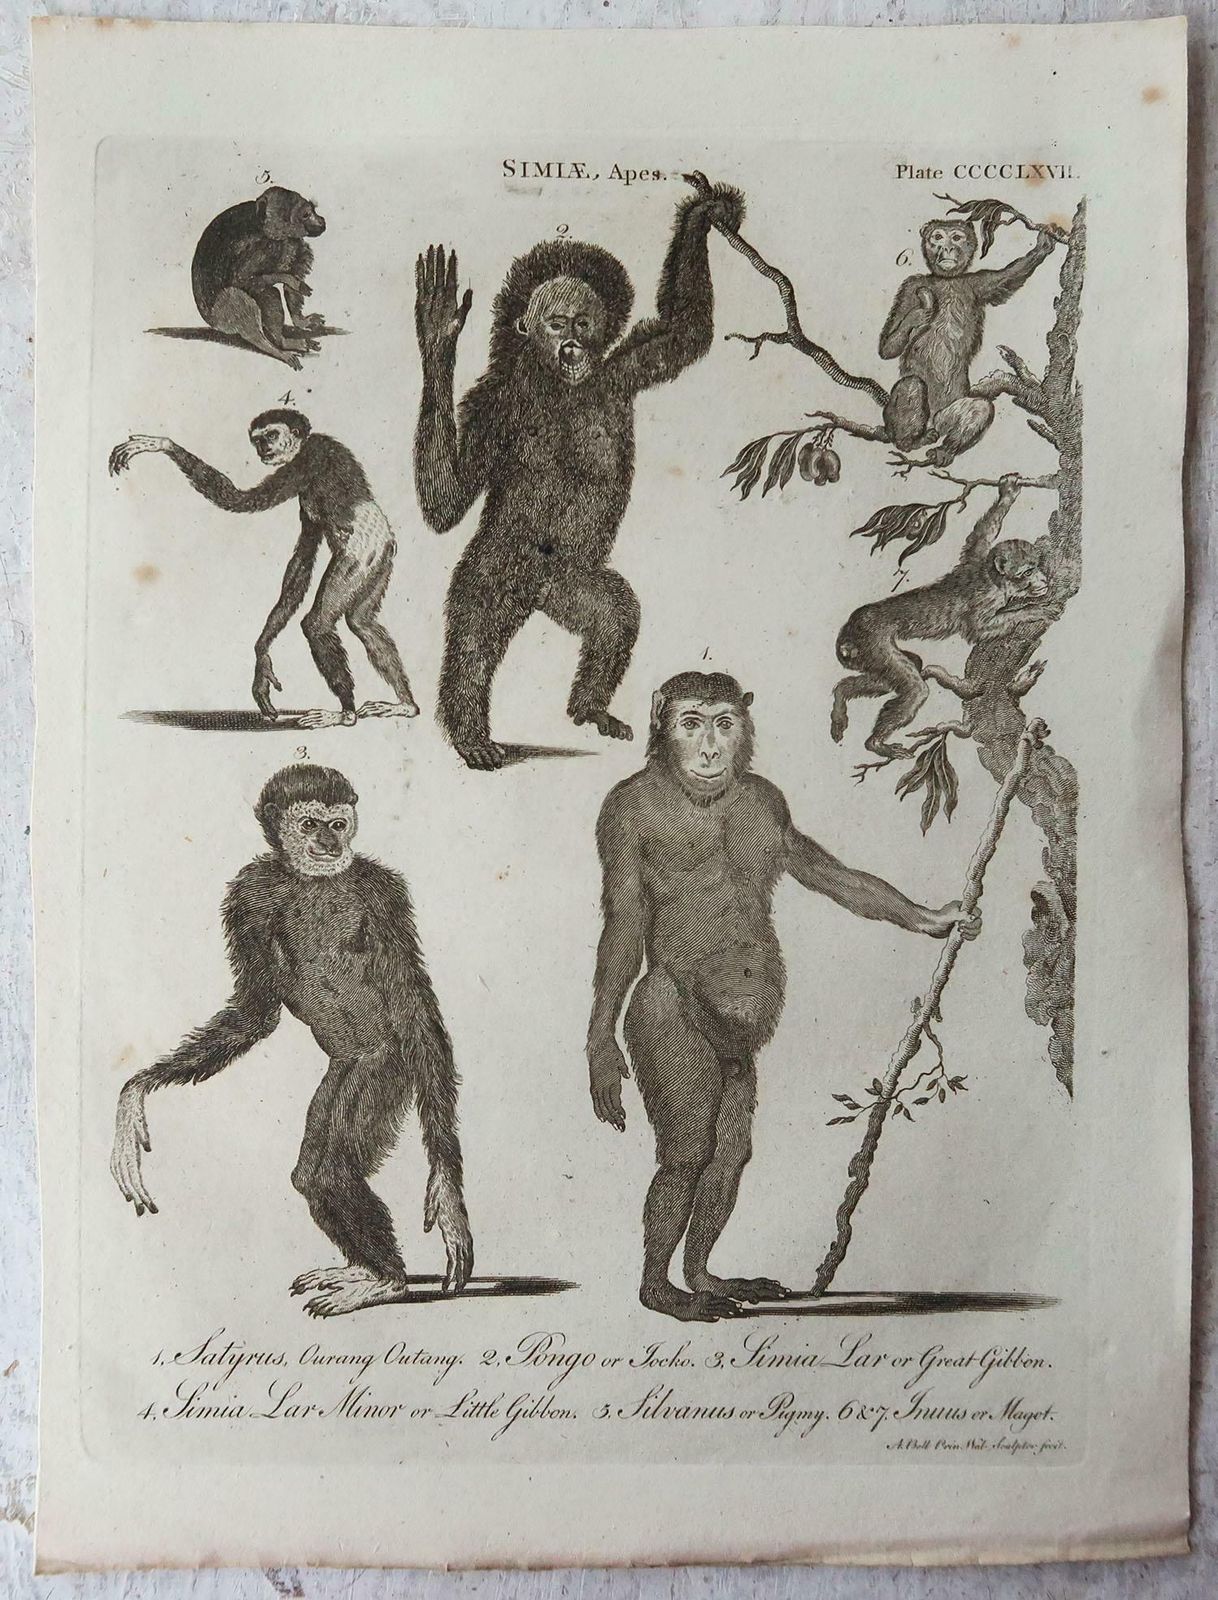 SIMIÆ, Apes.
Plate CCCCLXVII.
5.
2.
6.
4.
7.
1.
3.
1, Satyrus, Ourang Outang. 2, Pongo or Jocko. 3, Simia Lar or Great Gibbon.
4, Simia Lar Minor or Little Gibbon. 5, Silvanus or Pigmy. 6 & 7, Inuus or Magot.
A. Bell Prin. Wal. Sculptor fecit.